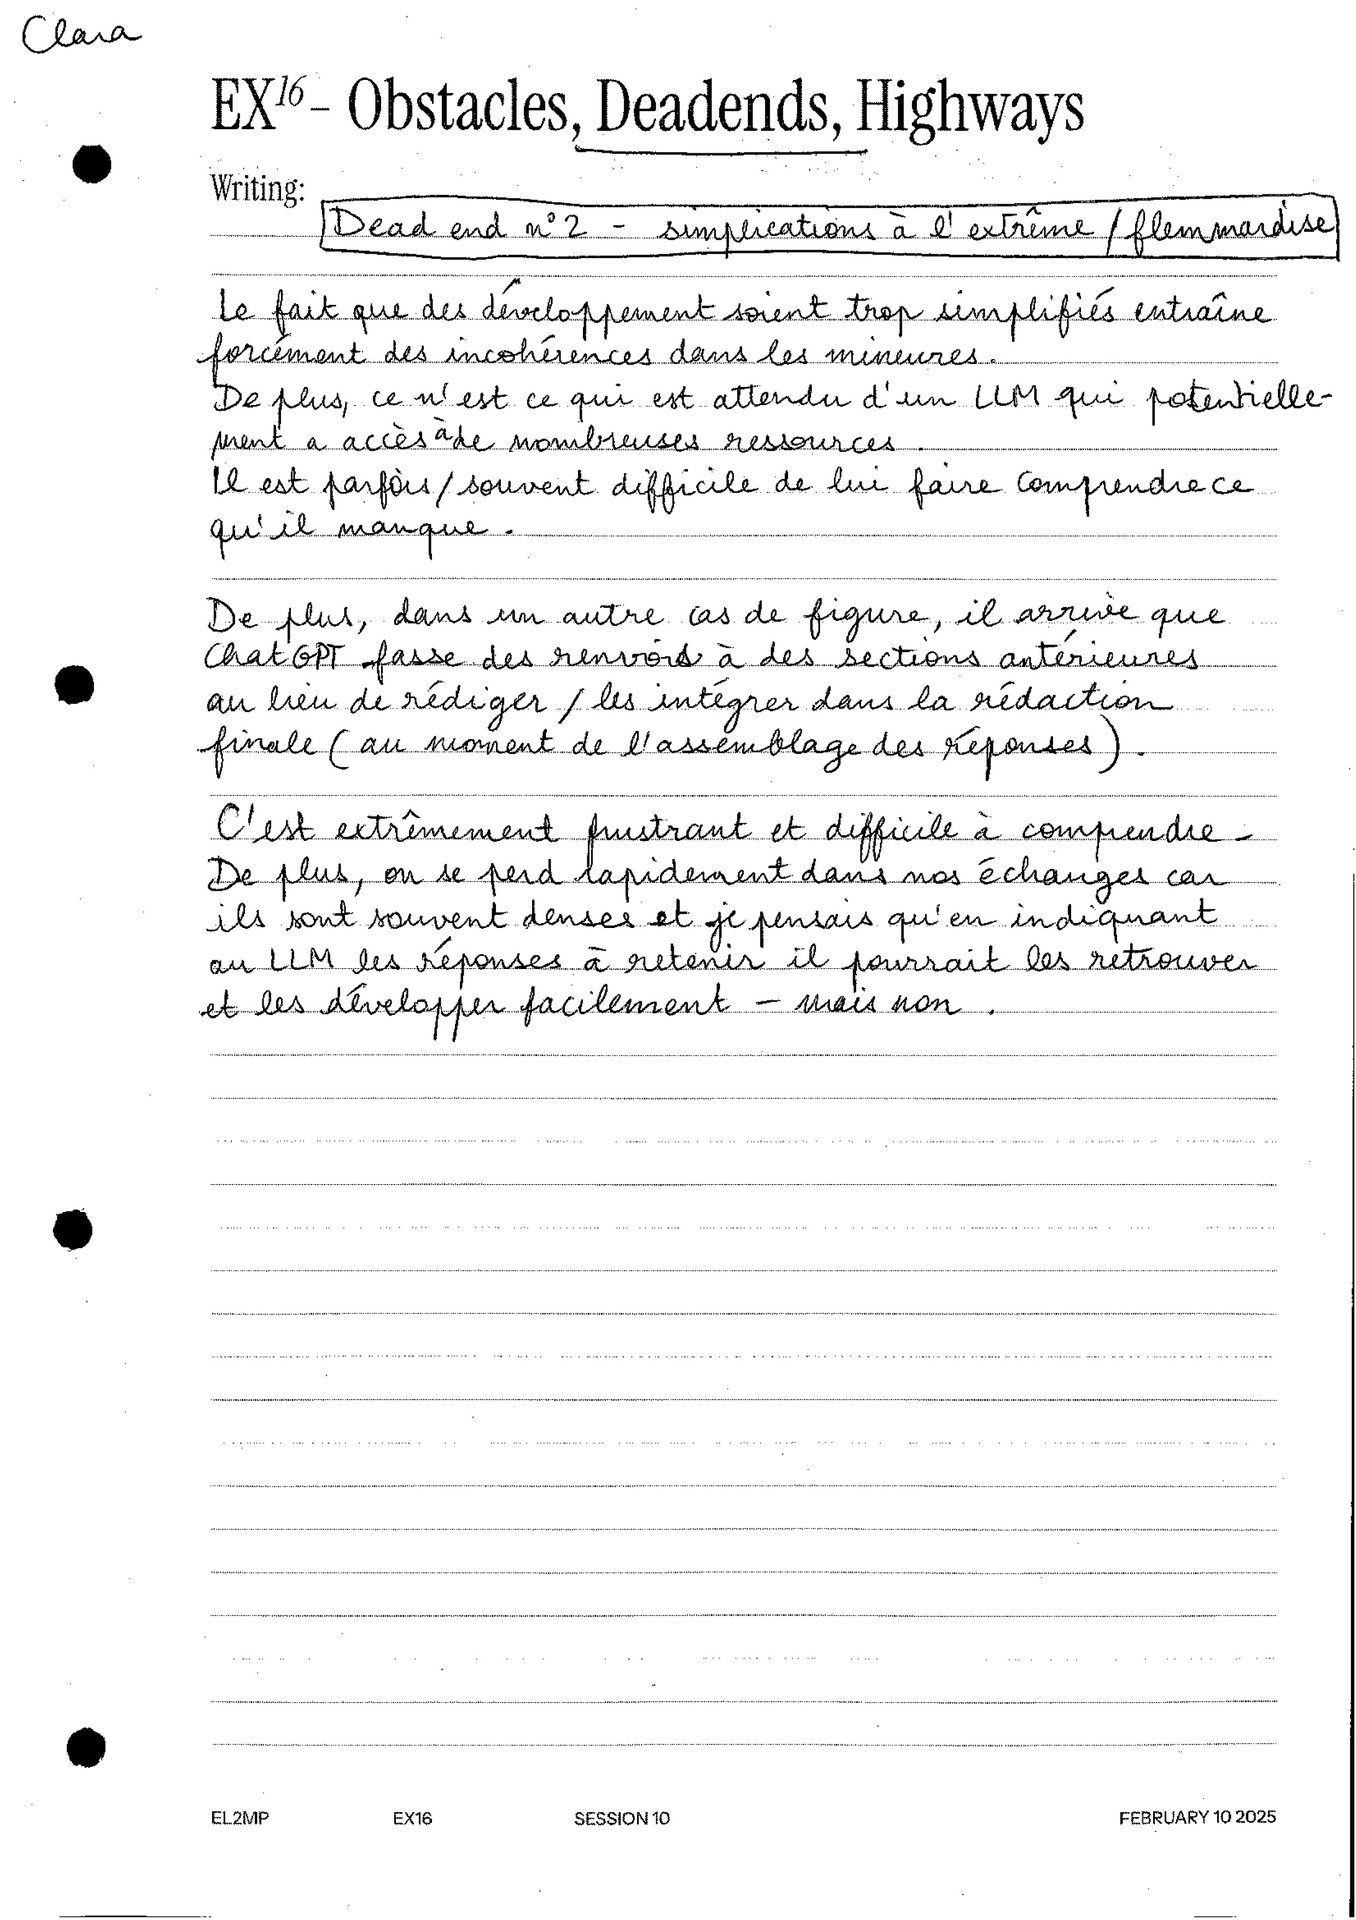 Clara
EX16 – Obstacles, Deadends, Highways
Writing:
Dead end n°2 - simplications à l'extrême / flemmardise
Le fait que des développement soient trop simplifiés entraîne
forcément des incohérences dans les mineures.
De plus, ce n'est ce qui est attendu d'un LLM qui potentielle-
ment a accès à de nombreuses ressources.
Il est parfois/souvent difficile de lui faire comprendre ce
qu'il manque.
De plus, dans un autre cas de figure, il arrive que
ChatGPT fasse des renvois à des sections antérieures
au lieu de rédiger / les intégrer dans la rédaction
finale (au moment de l'assemblage des réponses).
C'est extrêmement frustrant et difficile à comprendre -
De plus, on se perd rapidement dans nos échanges car
ils sont souvent denses et je pensais qu'en indiquant
au LLM les réponses à retenir il pourrait les retrouver
et les développer facilement - mais non.
EL2MP EX16 SESSION 10 FEBRUARY 10 2025